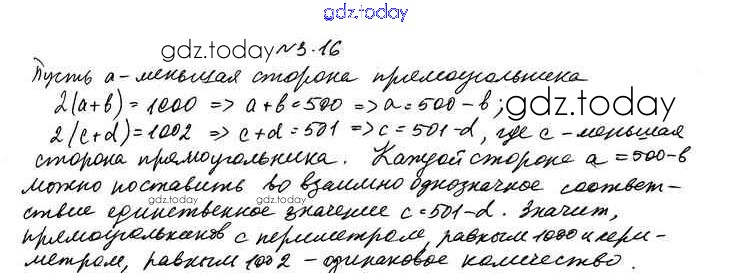 gdz.today
gdz.today №3.16
Пусть a - меньшая сторона прямоугольника
2(a+b)=1000 => a+b=500 => a=500-b;
gdz.today
2(c+d)=1002 => c+d=501 => c=501-d, где c - меньшая
сторона прямоугольника. Каждой стороне a=500-b
можно поставить во взаимно однозначное соответ-
gdz.today gdz.today
ствие единственное значение c=501-d. Значит,
прямоугольников с периметром, равным 1000 и пери-
метром, равным 1002 - одинаковое количество.